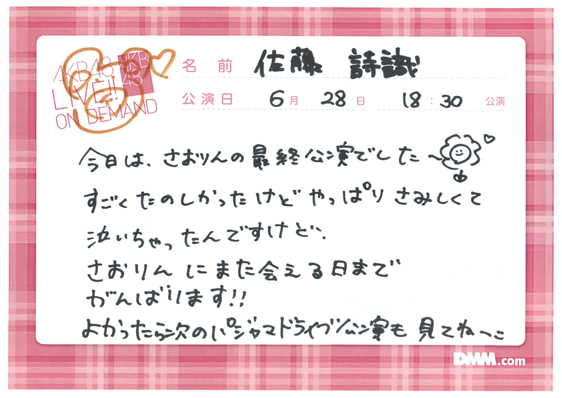 AKB48
LIVE!!
ON DEMAND
AKB48
名前 佐藤 詩識
公演日 6月 28日 18:30 公演
今日は、さおりんの最終公演でした〜
すごくたのしかったけど やっぱり さみしくて
泣いちゃったんですけど、
さおりん にまた会える日まで
がんばります!!
よかったら次のパジャマドライブ公演も 見てねー
DMM.com